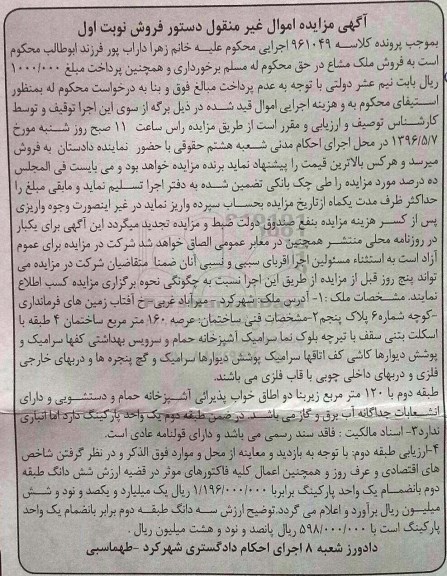 آگهی مزایده اموال غیر منقول دستور فروش نوبت اول
بموجب پرونده کلاسه ۹۶۱۰۴۹ اجرایی محکوم علیه خانم زهرا داراب پور فرزند ابوطالب محکوم
است به فروش ملک مشاع در حق محکوم له مسلم برخورداری و همچنین پرداخت مبلغ ۱۰۰۰/۰۰۰
ریال بابت نیم عشر دولتی با توجه به عدم پرداخت مبالغ فوق و بنا به درخواست محکوم له بمنظور
استیفای محکوم به و هزینه اجرایی اموال قید شده در ذیل برگه از سوی این اجرا توقیف و توسط
کارشناس توصیف و ارزیابی و مقرر است از طریق مزایده راس ساعت ۱۱ صبح روز شنبه مورخ
۱۳۹۶/۵/۷ در محل اجرای احکام مدنی شعبه هشتم حقوقی با حضور نماینده دادستان به فروش
میرسد و هرکس بالاترین قیمت را پیشنهاد نماید برنده مزایده خواهد بود و می بایست فی المجلس
ده درصد مورد مزایده را طی چک بانکی تضمین شده به دفتر اجرا تسلیم نماید و مابقی مبلغ را
حداکثر ظرف مدت یکماه ازتاریخ مزایده بحساب سپرده واریز نماید در غیر اینصورت وجوه واریزی
پس از کسر هزینه مزایده بنفع صندوق دولت ضبط و مزایده تجدید میگردد این آگهی برای یکبار
در روزنامه محلی منتشر همچنین در معابر عمومی الصاق خواهد شد شرکت در مزایده برای عموم
آزاد است به استثناء مسئولین اجرا اقربای سببی و نسبی آنان ضمنا متقاضیان شرکت در مزایده می
تواند پنج روز قبل از مزایده از طریق این اجرا نسبت به چگونگی نحوه برگزاری مزایده کسب اطلاع
نمایند. مشخصات ملک :۱- آدرس ملک: شهرکرد - میرآباد غربی-خ آفتاب زمین های فرمانداری
-کوچه شماره۶ پلاک پنجم۲-مشخصات فنی ساختمان: عرصه ۱۶۰ متر مربع ساختمان ۴ طبقه با
اسکلت بتنی سقف با تیرچه بلوک نما سرامیک آشپزخانه حمام و سرویس بهداشتی کفها سرامیک و
پوشش دیوارها کاشی کف اتاقها سرامیک پوشش دیوارها سرامیک و گچ پنجره ها و دربهای خارجی
فلزی و دربهای داخلی چوبی با قاب فلزی می باشند.
طبقه دوم با ۱۲۰ متر مربع زیربنا دو اطاق خواب پذیرائی آشپزخانه حمام و دستشویی و دارای
انشعابات جداگانه آب برق و گاز می باشد. در ضمن طبقه دوم یک واحد پارکینگ دارد اما انباری
ندارد۳- اسناد مالکیت : فاقد سند رسمی می باشد و دارای قولنامه عادی است.
۴-ارزیابی طبقه دوم: با توجه به بازدید و معاینه از محل و موارد فوق الذکر و در نظر گرفتن شاخص
های اقتصادی و عرف روز و همچنین اعمال کلیه فاکتورهای موثر در قضیه ارزش شش دانگ طبقه
دوم بانضمام یک واحد پارکینگ برابربا ۱/۱۹۶/۰۰۰/۰۰۰ ریال یک میلیارد و یکصد و نود و شش
میلیون ریال برآورد و اعلام می گردد.توضیح ارزش سه دانگ طبقه دوم برابر بانضمام یک واحد
پارکینگ است با ۵۹۸/۰۰۰/۰۰۰ ریال پانصد و نود و هشت میلیون ریال .
دادورز شعبه ۸ اجرای احکام دادگستری شهرکرد -طهماسبی